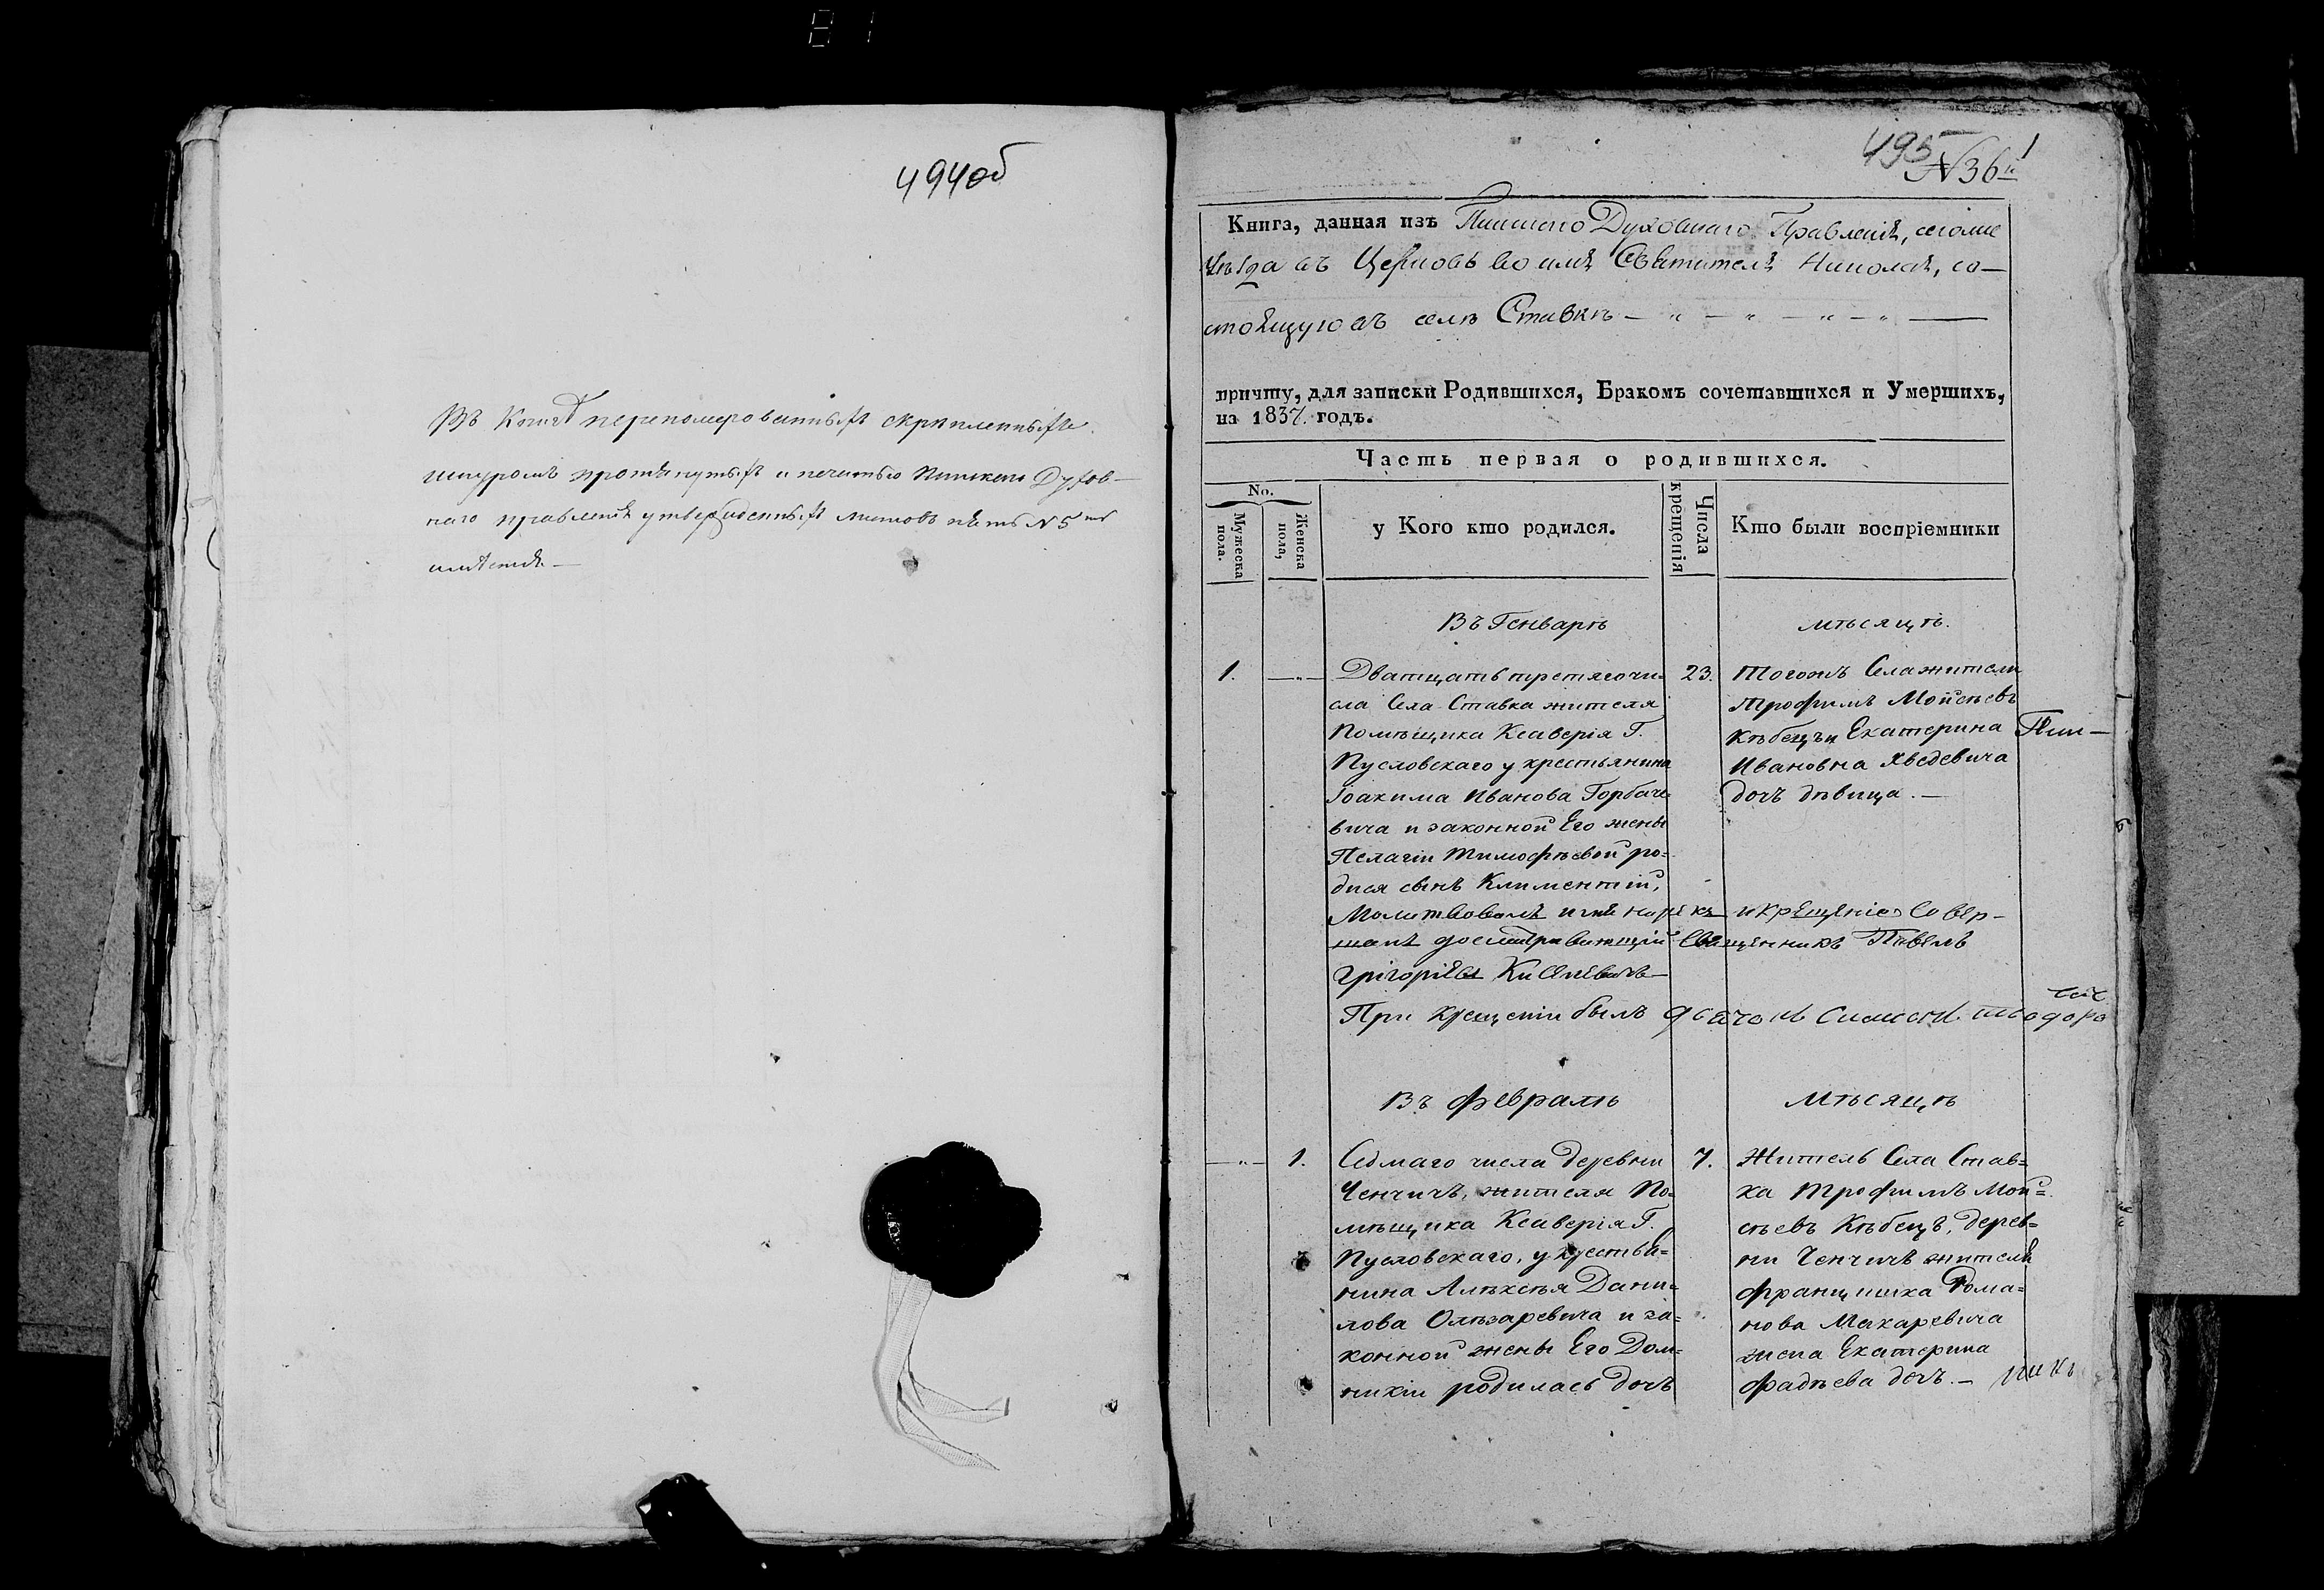 494об
Въ Книгѣ перенумерованныхъ скрѣпленныхъ
шнуромъ протянутыхъ и печатью Пинскаго Духов-
наго правленія утвержденныхъ листовъ пять N 5ть
имѣется —
495
1
N 36й
Книга, данная изъ Пинскаго Духовнаго Правленія, сегоже
уѣзда въ Церковь во имя Святителя Николая, со-
стоящую въ селѣ Ставкѣ — „ — „ — „ — „ —
причту, для записки Родившихся, Бракомъ сочетавшихся и Умершихъ,
на 1837. годъ.
Часть первая о родившихся.
No.
Мужеска пола.
Женска пола,
у Кого кто родился.
Числа крещенія
Кто были воспріемники
Въ Генварѣ мѣсяцѣ.
1. — „ —
Дватцать третяго чи-
сла Села Ставка жителя
Помѣщика Ксаверія Г.
Пусловскаго у крестьянина
Іоакима Иванова Горбаче
вича и законной Его жены
Пелагіи Тимофѣевой ро-
дися сынъ Климентій,
23.
Тогожъ Села жители
Трофимъ Мойсѣевъ
Кѣбецъ и Екатерина
Ивановна Яведевича
дочъ дѣвица. —
Пин-
Молитвовалъ имя нарекъ и крещеніе Совер-
шалъ Священникъ Павелъ
Григоріевъ
При крещеніи былъ дьячокъ Симеонъ Теодоро
Въ Февралѣ Мѣсяцѣ
— „ — 1.
Седмаго числа Деревни
Ченчичъ, жителя По-
мѣщика Ксаверія Г.
Пусловскаго, у крестья-
нина Алѣксѣя Дани-
лова Олѣзаревича и за-
конной жены Его Дом-
никіи родилась дочъ
7.
Житель Села Став-
ка Трофимъ Мой-
сѣевъ Кѣбецъ, дерев-
ни Ченчичъ жителя
Францишка Рома-
нова Макаревича
жена Екатерина
Фадѣева дочъ. —